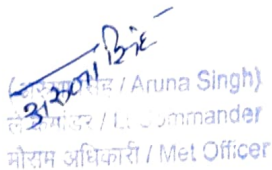 अरुणा सिंह
(अरुणा सिंह / Aruna Singh)
/ Lt Commander
मौसम अधिकारी / Met Officer